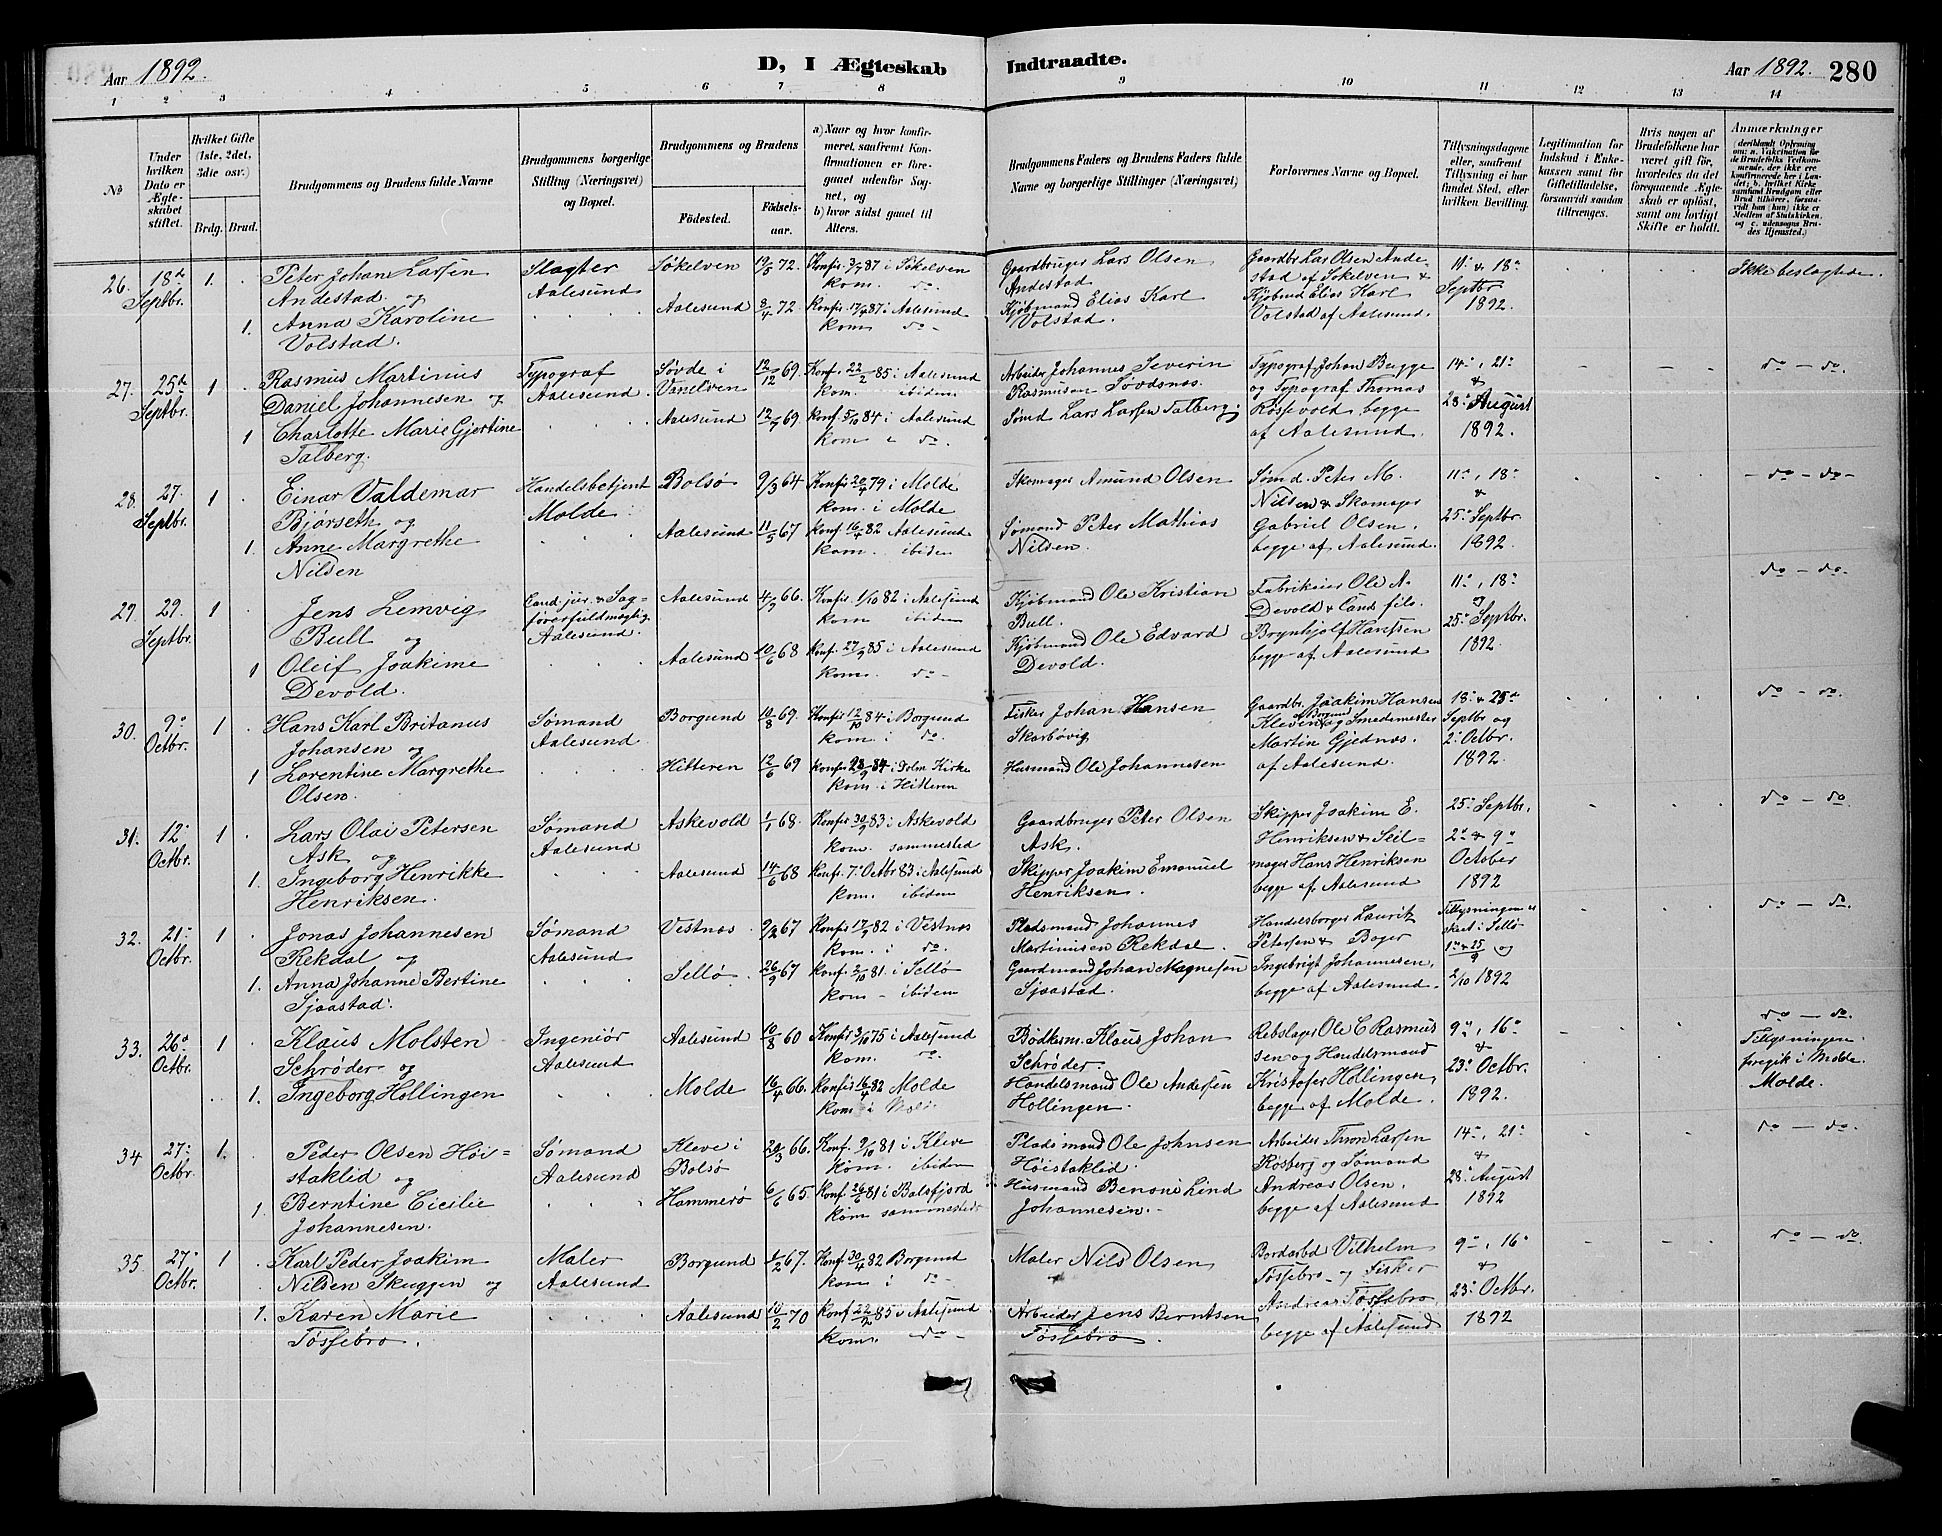 Aar 1892.
D, I Ægteskab Indtraadte.
Aar 1892. 280
1 2 3 4 5 6 7 8 9 10 11 12 13 14
No
Under hvilken Dato er Ægteskabet stiftet.
Hvilket Gifte (1ste, 2det, 3die osv.)
Brdg. Brud.
Brudgommens og Brudens fulde Navne
Brudgommens borgerlige Stilling (Næringsvei) og Bopæl.
Brudgommens og Brudens
Fødested. Fødselsaar.
a) Naar og hvor konfirmeret, saafremt Konfirmationen er foregaaet udenfor Sognet, og
b) hvor sidst gaaet til Alters.
Brudgommens Faders og Brudens Faders fulde Navne og borgerlige Stillinger (Næringsvei)
Forlovernes Navne og Bopæl.
Tillysningsdagene eller, saafremt Tillysning ei har fundet Sted, efter hvilken Bevilling.
Legitimation for Indskud i Enkekassen samt for Giftetilladelse, forsaavidt saadan tiltrænges.
Hvis nogen af Brudefolkene har været gift før, hvorledes da det foregaaende Ægteskab er opløst, samt om lovligt Skifte er holdt.
Anmærkninger (deriblandt Oplysning om: a. Vaccination for de Brudefolks Vedkommende, der ikke ere konfirmerede her i Landet; b. hvilket Kirkesamfund Brudgom eller Brud tilhører, forsaavidt han (hun) ikke er Medlem af Statskirken, og c. udensogns Brudes Hjemsted.)
26. 18de Septbr. 1. Peter Johan Larsen Andestad og
Slagter Aalesund
Søkelven 19/5 72. Konfir. 3/7 87 i Søkelven kom. do.
Gaardbruger Lars Olsen Andestad
Gaardbr. Lars Olsen Andestad af Søkelven & Kjøbmd Elias Karl Volstad af Aalesund.
11te & 18de Septbr 1892.
Ikke beslægtede.
1. Anna Karoline Volstad.
Aalesund 8/4 72. Konfir. 17/4 87 i Aalesund kom do -
Kjøbmand Elias Karl Volstad.
27. 25de Septbr. 1 Rasmus Martinus Daniel Johannesen og
Typograf Aalesund.
Søvde i Vanelven 12/12 69. Konf. 22/2 85 i Aalesund kom. ibidem
Arbeider Johannes Severin Rasmusen Søvdsnæs.
Typograf Johan Bugge og Typograf Thomas Røsevold begge af Aalesund.
14de, 21de & 28de August 1892.
do - do.
1 Charlotte Marie Gjertine Talberg.
Aalesund 12/7 69. Konf. 5/10 84 i Aalesund kom i do.
Sømd Lars Larsen Talberg.
28. 27. Septbr. 1 Einar Valdemar Bjørseth og
Handelsbetjent Molde
Bolsø 9/3 64 Konfir 20/4 79 i Molde kom. i Molde
Skomager Amund Olsen
Sømd. Peter M. Nilsen & Skomager Gabriel Olsen, begge af Aalesund.
11te, 18de & 25de Septbr. 1892.
- do - do -
1. Anne Margrethe Nilsen
Aalesund 11/5 67 Konf 16/4 82 Aalesund kom. ibidem
Sømand Peter Mathias Nilsen.
29. 29. Septbr. 1 Jens Lemvig Bull og
Cand. jur. & Sagførerfuldmægtig. Aalesund.
Aalesund 4/9 66. Konfir. 1/10 82 i Aalesund kom ibidem
Kjøbmand Ole Kristian Bull.
Fabrikeier Ole A. Devold & Cand. filo. Brynhjolf Hanssen begge af Aalesund
11te, 18de og 25de Septbr. 1892.
do - do.
1 Oleif Joakime Devold.
Aalesund 10/6 68 Konf. 27/9 85 i Aalesund kom. do -
Kjøbmand Ole Edvard Devold.
30. 9de Octbr. 1 Hans Karl Britanus Johansen og
Sømand Aalesund
Borgund 10/8 69. Konfir 12/10 84 i Borgund kom. i do.
Fisker Johan Hansen Skarbøvig
Gaardbr. Joakim Hansen Kleven af Borgund og Smedemester Martin Gjednæs. af Aalesund.
18de & 25de Septbr og 2de Octbr. 1892
do - do.
1 Lorentine Margrethe Olsen.
Hitteren 12/6 69 Konfir 28/9 84 i Dolm Kirke kom. i Hitteren
Husmand Ole Johannesen
31. 12te Octbr. 1 Lars Olai Petersen Ask og
Sømand Aalesund
Askevold 1/1 68. Konfir 30/9 83 i Askevold kom. sammested
Gaardbruger Peter Olsen Ask.
Skipper Joakim E. Henriksen & Seilmager Hans Henriksen begge af Aalesund
25de Septbr. 2de & 9de October 1892
do - do.
1. Ingeborg Henrikke Henriksen.
Aalesund 14/6 68 Konf. 7de Octbr 83 i Aalesund kom. ibidem
Skipper Joakim Emanuel Henriksen.
32. 21de Octbr. 1 Jonas Johannesen Rekdal og
Sømand Aalesund
Vestnæs. 9/2 67 Konfir 17/9 82 i Vestnæs kom. i do.
Pladsmand Johannes Martinusen Rekdal.
Handelsborger Laurits Petersen & Bager Ingebrigt Johannesen, begge af Aalesund.
Tillysningen er skeet i Sellø & 25/9 og 2/10 1892
do - do.
1. Anna Johanne Bertine Sjaastad.
Sellø. 26/9 67 Konf. 2/10 81. i Sellø kom - ibidem
Gaardmand Johan Magnesen Sjaastad.
33. 26de Octbr. 1 Klaus Molsten Schrøder og
Ingeniør Aalesund
Aalesund 10/8 60 Konfir 3/10 75 i Aalesund kom. do.
Bødkerm. Klaus Johan Schrøder.
Rebslager Ole C. Rasmussen og Handelsmand Kristofer Hollingen, begge af Molde.
9de, 16de & 23de Octbr. 1892.
do - do. Tillysningen foregik i Molde. Molde.
1. Ingeborg Hollingen
Molde 16/4 66. Konfir 16/4 82 Molde kom i Molde.
Handelsmand Ole Andersen Hollingen.
34 27de Octbr. 1. Peder Olsen Høistaklid og
Sømand Aalesund
Kleve i Bolsø 20/3 66. Konf. 9/10 81 i Kleve kom. ibidem
Pladsmand Ole Johnsen Høistaklid.
Arbeider Thron Larsen Røsberg og Sømand Andreas Olsen, begge af Aalesund
14de, 21de & 28de August 1892
do - do.
1. Berntine Cicilie Johannesen.
Hammerø 6/6 65. Konf. 26/6 81 i Balsfjord kom sammesteds
Husmand Benoni Lind Johannesen. -
35. 27de Octbr. 1 Karl Peder Joakim Nilsen Skuggen og
Maler Aalesund
Borgund 1/2 67. Konf 30/4 82 Borgund kom i do -
Maler Nils Olsen
Bordarbd Vilhelm Fossebro - og Fisker Andreas Føssebro begge af Aalesund
9de, 16de & 23de Octbr. 1892
do - do.
1. Karen Marie Føssebro.
Aalesund 10/2 70 Konf 22/2 85 i Aalesund kom. do -
Arbeider Jens Berntsen Føssebro.